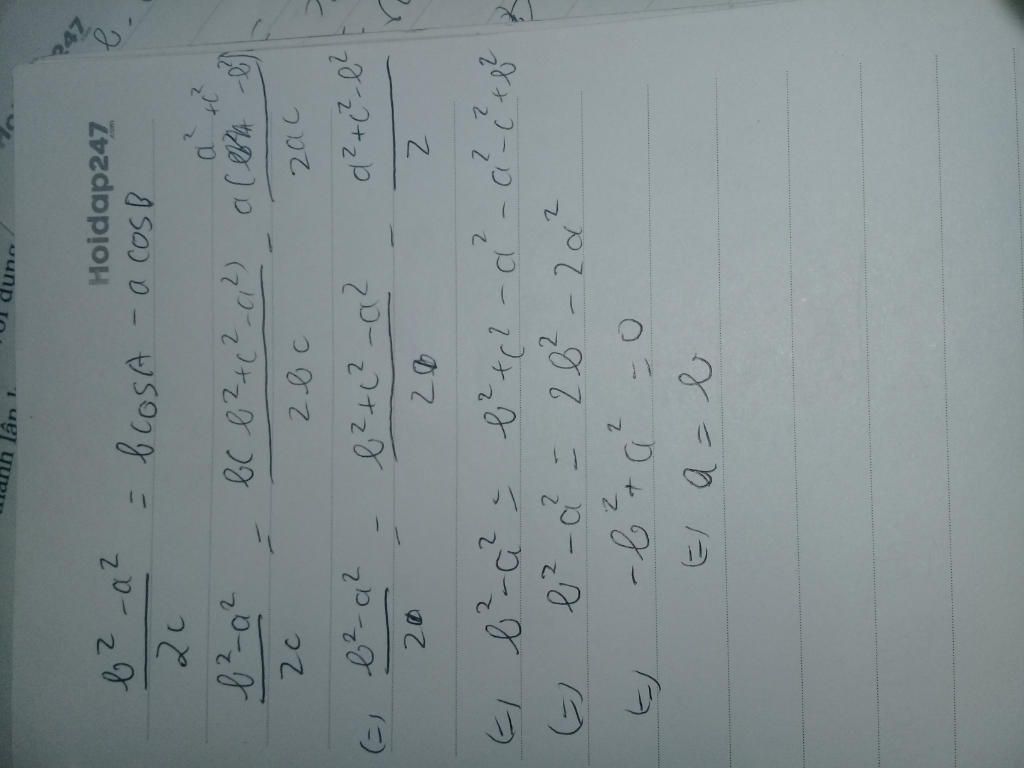 Hoidap247
.com
b² - a² / 2c = b cosA - a cosB
b² - a² / 2c = b( b² + c² - a²) / 2bc - a( a² + c² - b²) / 2ac
(=) b² - a² / 2 = b² + c² - a² / 2 - a² + c² - b² / 2
(=) b² - a² = b² + c² - a² - a² - c² + b²
(=) b² - a² = 2b² - 2a²
(=) -b² + a² = 0
(=) a = b